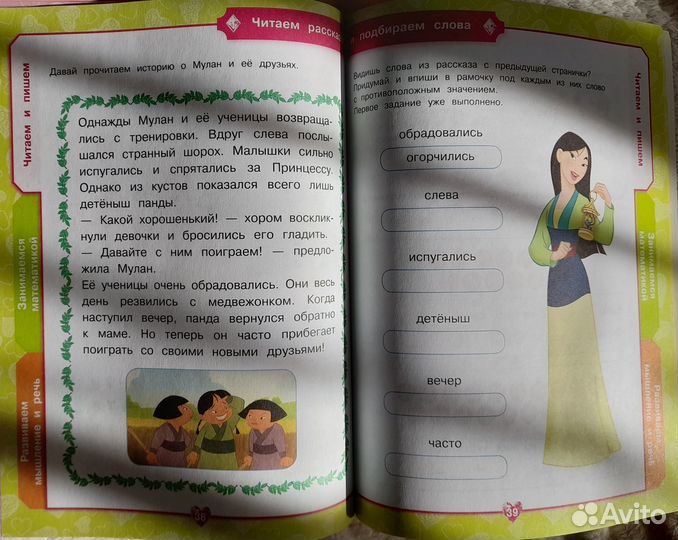 Читаем расска и подбираем слова
Давай прочитаем историю о Мулан и её друзьях.
Читаем и пишем
Занимаемся математикой
Развиваем мышление и речь
Однажды Мулан и её ученицы возвраща-
лись с тренировки. Вдруг слева послы-
шался странный шорох. Малышки сильно
испугались и спрятались за Принцессу.
Однако из кустов показался всего лишь
детёныш панды.
— Какой хорошенький! — хором восклик-
нули девочки и бросились его гладить.
— Давайте с ним поиграем! — предло-
жила Мулан.
Её ученицы очень обрадовались. Они весь
день резвились с медвежонком. Когда
наступил вечер, панда вернулся обратно
к маме. Но теперь он часто прибегает
поиграть со своими новыми друзьями!
38
Видишь слова из рассказа с предыдущей странички?
Придумай и впиши в рамочку под каждым из них слово
с противоположным значением.
Первое задание уже выполнено.
обрадовались
огорчились
слева
испугались
детёныш
вечер
часто
Читаем и пишем
Занимаемся математикой
Развиваем мышление и речь
39
Avito